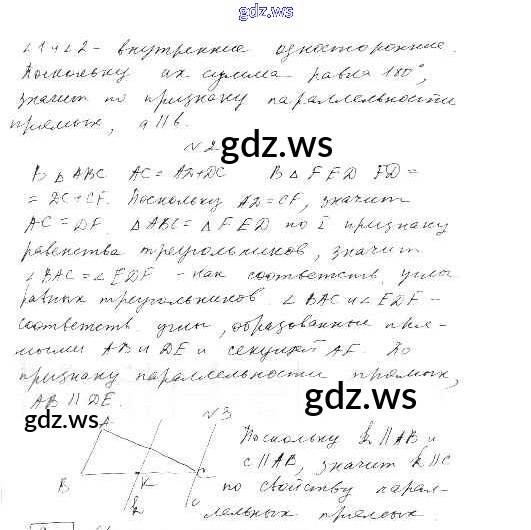 gdz.ws
gdz.ws
∠1 и ∠2 - внутренние односторонние.
Поскольку их сумма равна 180°,
значит по признаку параллельности
прямых, a || b.
gdz.ws
№2
В △ ABC AC = AD + DC В △ FED FD =
= DC + CF. Поскольку AD = CF, значит
AC = DF. △ ABC = △ FED по I признаку
равенства треугольников, значит
∠ BAC = ∠ EDF - как соответств. углы
равных треугольников. ∠ BAC и ∠ EDF -
соответств. углы, образованные пря-
мыми AB и DE и секущей AF. По
признаку параллельности прямых,
AB || DE.
gdz.ws
№3
gdz.ws
A
B
K
C
k
c
Поскольку k || AB и
c || AB, значит k || c
по свойству парал-
лельных прямых.